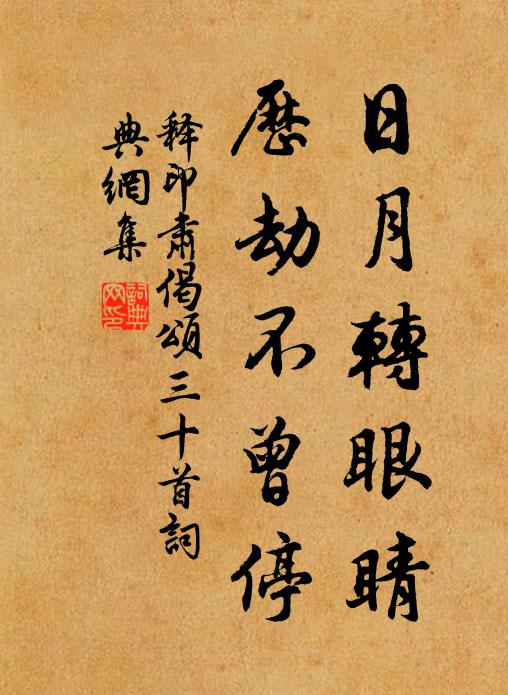 日月轉眼睛
歷劫不曾停
释印肅偈頌三十首詞
典網集
詞典
网印